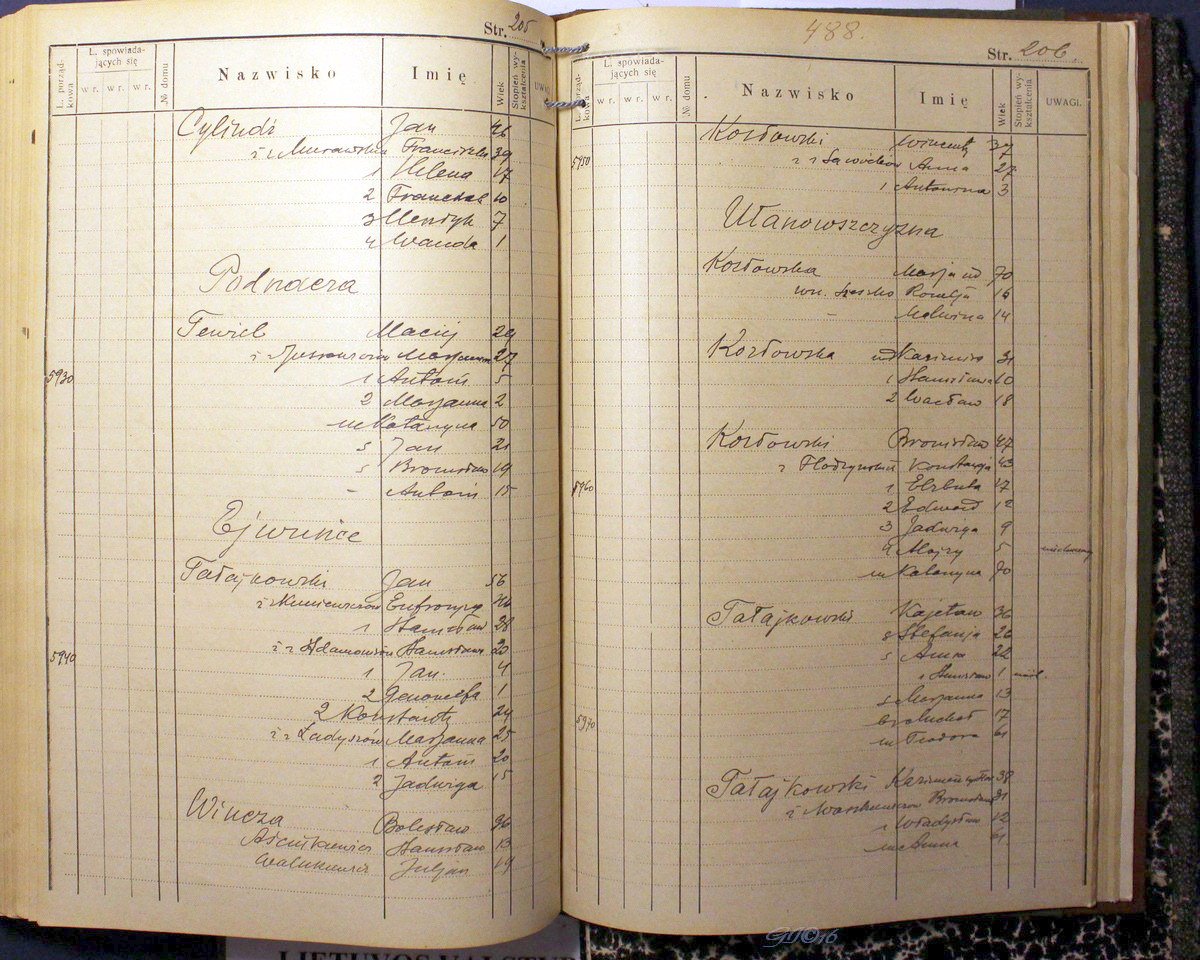 Str. 205
L. porządkowa
L. spowiadających się
wr. wr. wr.
№ domu
Nazwisko
Imię
Wiek
Stopień wykształcenia
Cylindź Jan 46
ż z Franciszka 39
1 Helena 17
2 10
3 Henryk 7
4 Wanda 1
Podnacza
Maciej 29
ż z Marjanna 27
5930 1 Antoni 5
2 Marjanna 2
m Katarzyna 50
s Jan 21
s Bronisław 19
Antoni 15
Ejwunice
Tałajkowski Jan 56
ż z Eufrozyna 46
1 Stanisław 28
ż z Adamowiczów Stanisława 20
5940 1 Jan 4
2 Genowefa 1
2 Konstanty 24
ż z Ładyszów Marjanna 25
1 Antoni 20
2 Jadwiga 15
Wincza Bolesław 36
Stanisław 13
Juljan 19
488.
Str. 206
L. porządkowa
L. spowiadających się
wr. wr. wr.
№ domu
Nazwisko
Imię
Wiek
Stopień wykształcenia
UWAGI.
Kozłowski Wincenty 37
5950 ż z Anna 27
1 Antonina 3
Ułanowszczyzna
Kozłowska Marja wd 70
wn. Rozalja 16
Malwina 14
Kozłowska wd Kazimira 31
1 Stanisława 10
2 Wacław 18
Kozłowski Bronisław 47
ż Konstancja 43
5960 1 Elżbieta 17
2 Edward 12
3 Jadwiga 9
4 Alojzy 5
m Katarzyna 70
Tałajkowski Kajetan 36
s Stefanja 26
s Anna 22
1 Stanisław 1
s Marjanna 13
5970 br Michał 17
m Teodora 61
Tałajkowski 38
ż Bronisława 31
1 Władysław 12
m Anna 61
GM©16
LIETUVOS VALSTYB